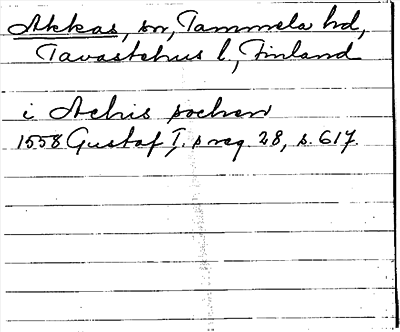 Akkas, sn, Tammela hd,
Tavastehus l, Finland
i Achis sochen
1558 Gustaf I. s reg. 28, s. 617.